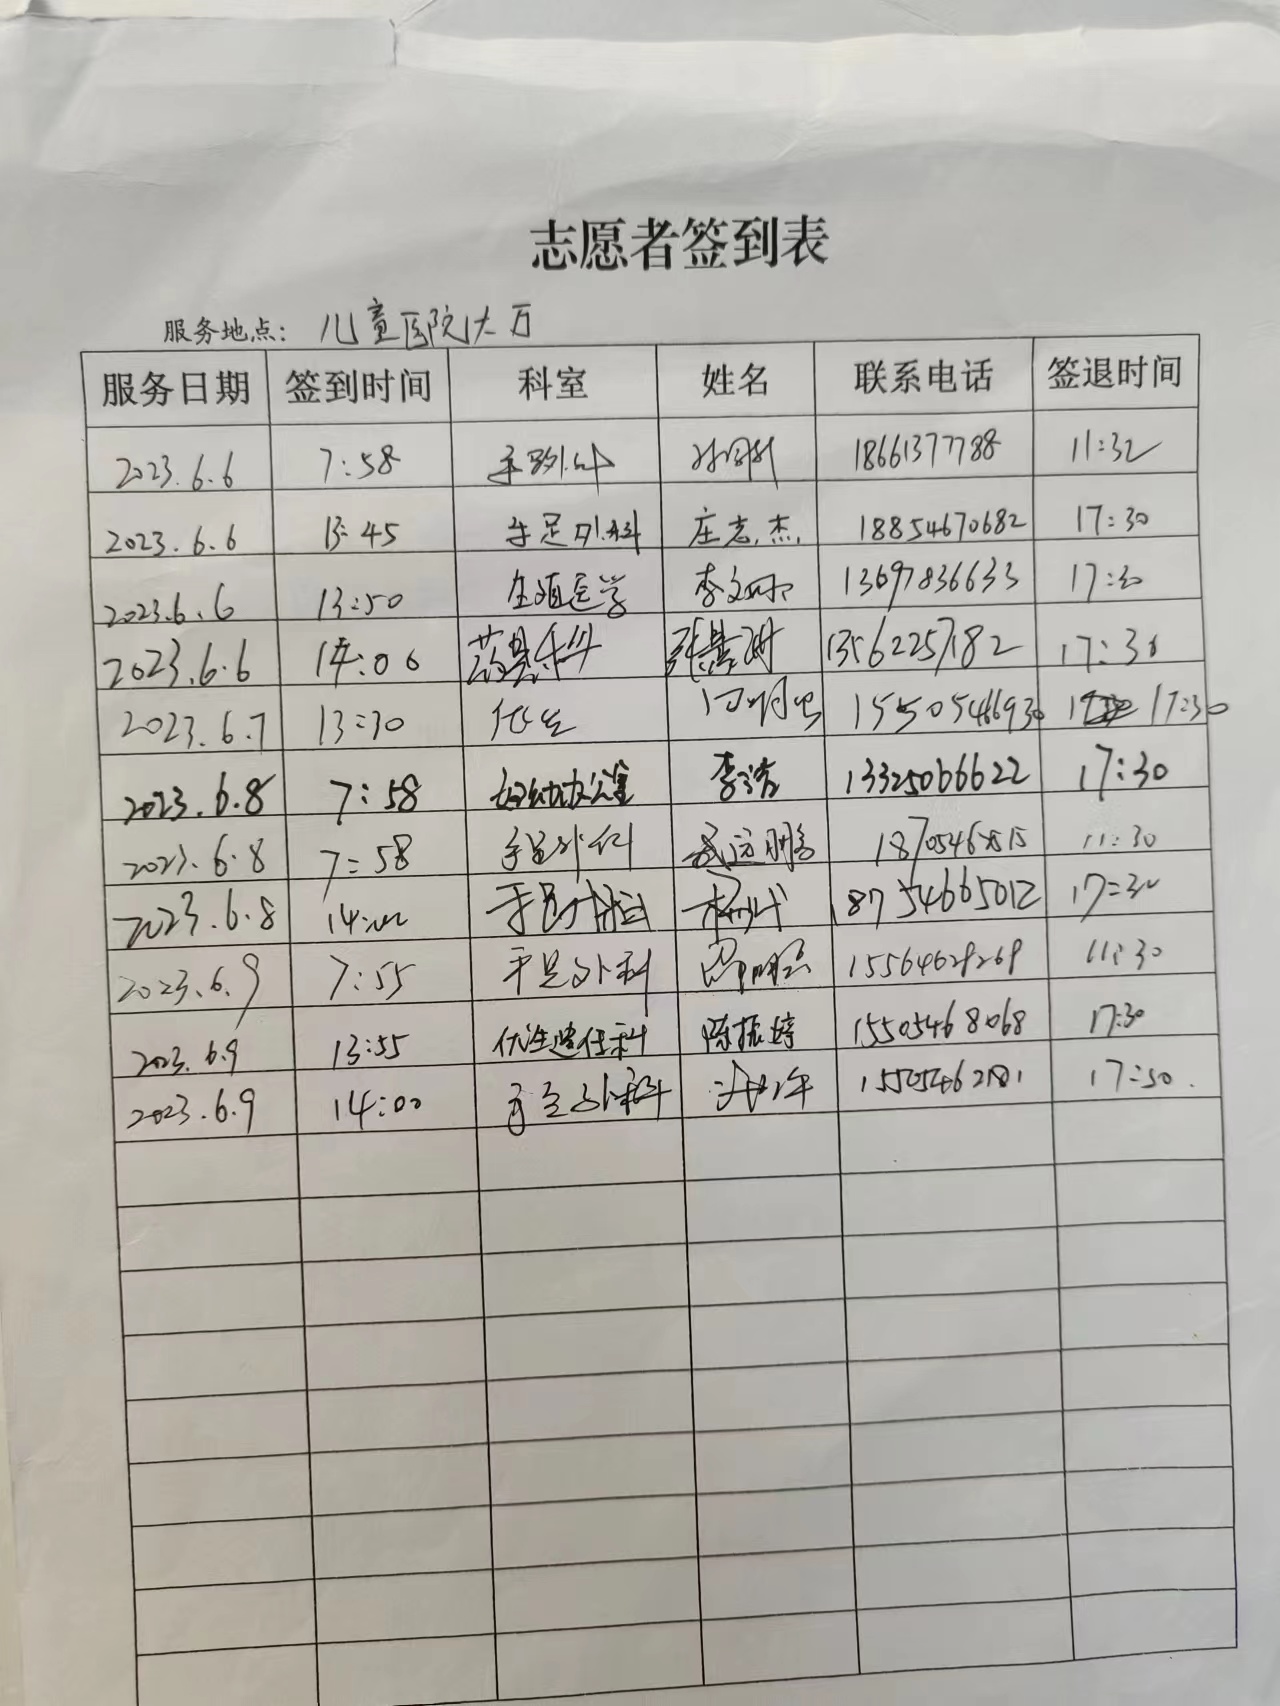 志愿者签到表
服务地点: 儿童医院大厅
服务日期 签到时间 科室 姓名 联系电话 签退时间
2023.6.6 7:58 手足外科 18661377788 11:32
2023.6.6 13:45 手足外科 庄志杰 18854670682 17:30
2023.6.6 13:50 生殖医学 李文 13697836633 17:30
2023.6.6 14:00 13562257182 17:30
2023.6.7 13:30 15505466930 17:30
2023.6.8 7:58 妇幼办公室 李洁 13325066622 17:30
2023.6.8 7:58 手足外科 11:30
2023.6.8 14:00 手足外科 18754665012 17:30
2023.6.9 7:55 手足外科 15564629269 11:30
2023.6.9 13:55 优生遗传科 陈振婷 15505468068 17:30
2023.6.9 14:00 手足外科 17:30